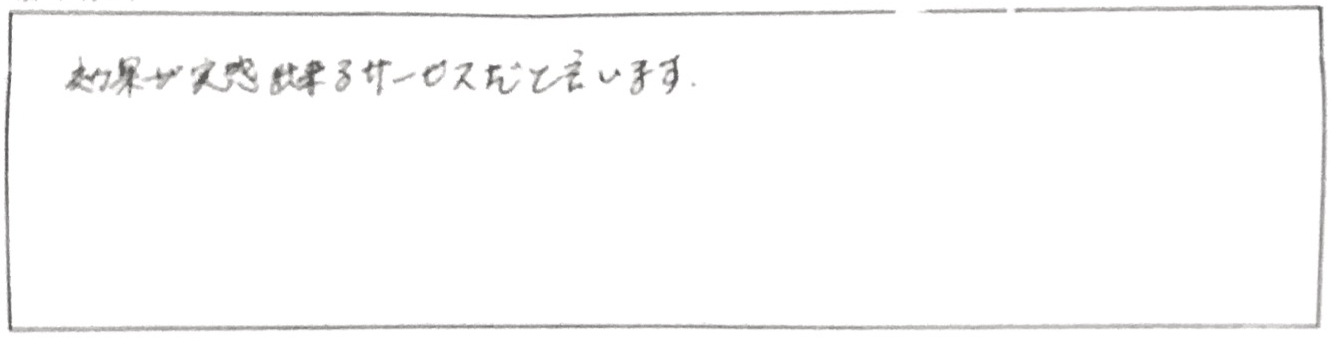 効果が実感出来るサービスだと言います.